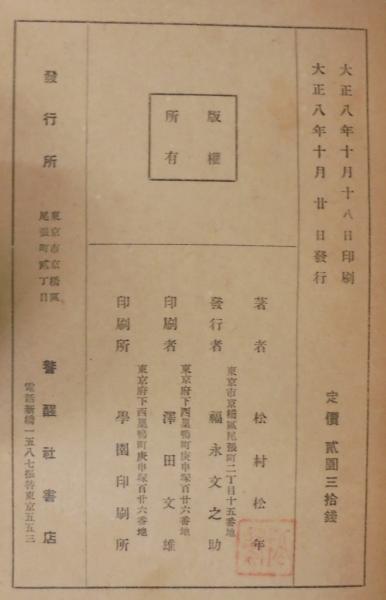 大正八年十月十八日印刷
大正八年十月廿日發行
定價貳圓三拾錢
版權
所有
著者 松村松年
東京市京橋區尾張町二丁目十五番地
發行者 福永文之助
東京府下西巢鴨町庚申塚百廿六番地
印刷者 澤田文雄
東京府下西巢鴨町庚申塚百廿六番地
印刷所 學園印刷所
發行所
東京市京橋區
尾張町貳丁目
警醒社書店
電話新橋一五八七振替東京五五三